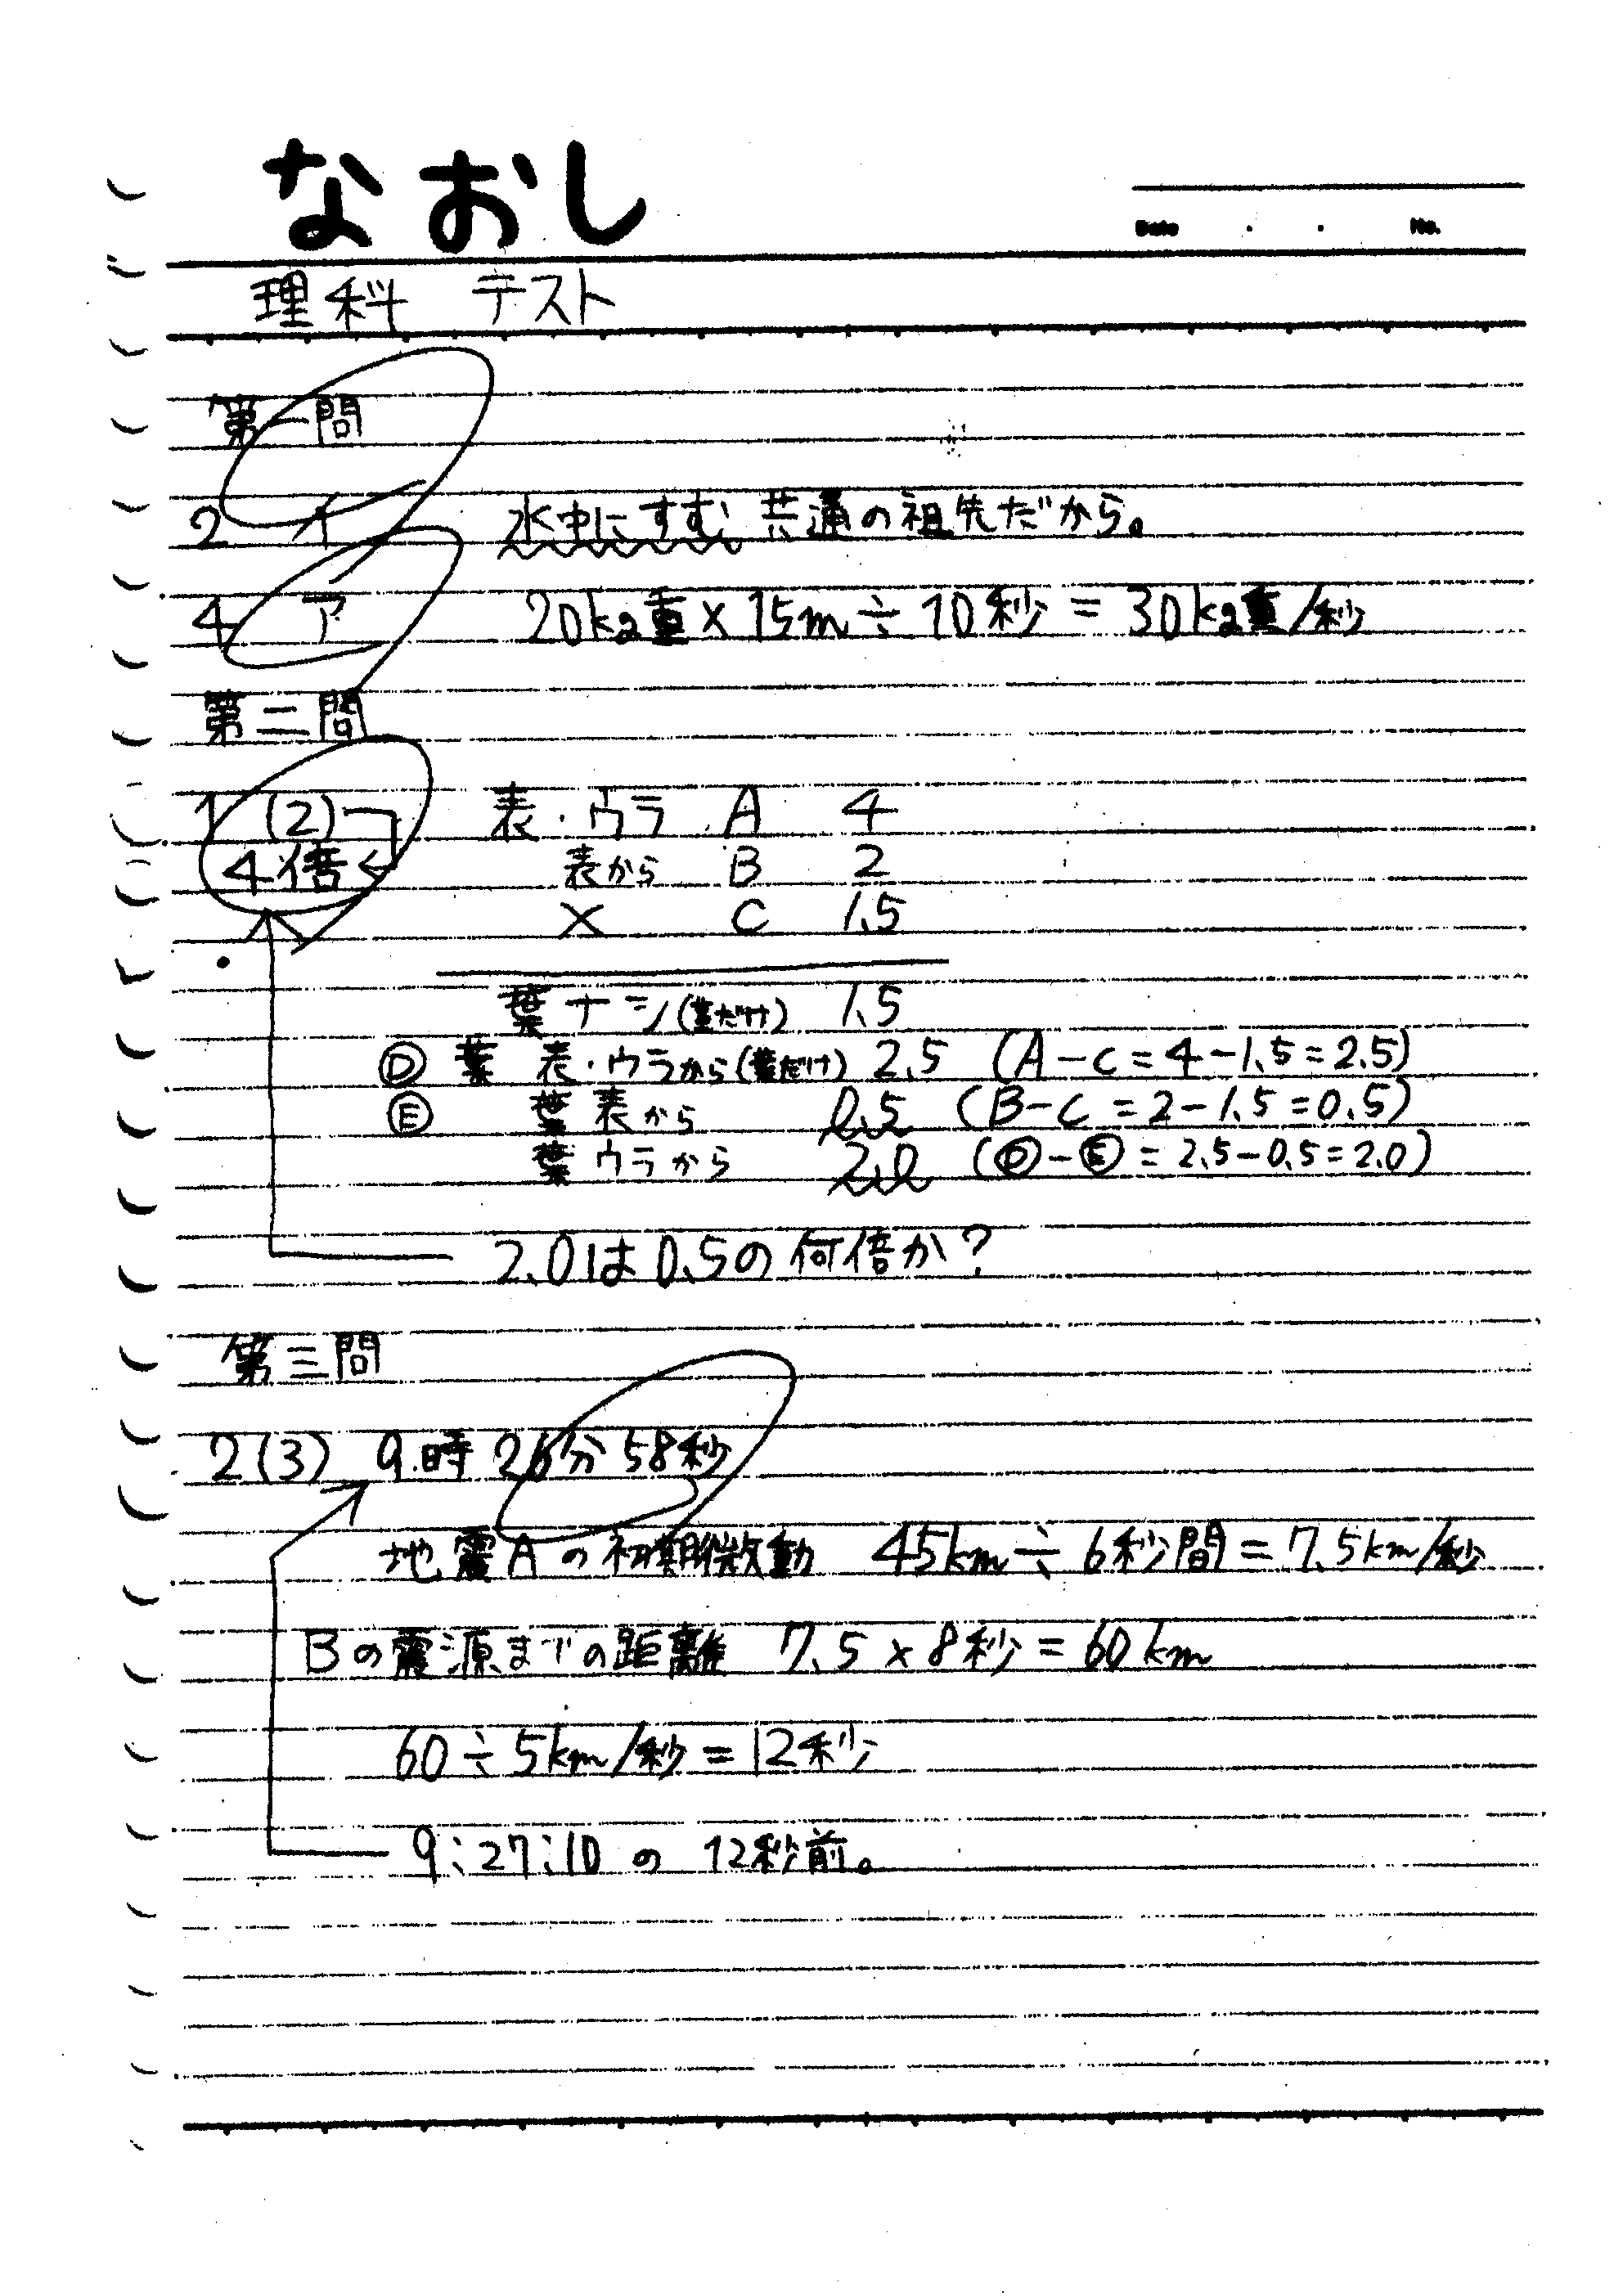 なおし
Date . . No.
理科 テスト
第一問
2 イ 水中にすむ 共通の祖先だから。
4 ア 20kg重×15m÷10秒=30kg重/秒
第二問
1 (2) 表・ウラ A 4
4倍 表から B 2
× C 1.5
葉ナシ(茎だけ) 1.5
Ⓓ 葉 表・ウラから(葉だけ) 2.5 (A-C=4-1.5=2.5)
Ⓔ 葉 表から 0.5 (B-C=2-1.5=0.5)
葉 ウラから 2.0 (Ⓓ-Ⓔ=2.5-0.5=2.0)
2.0は0.5の何倍か?
第三問
2(3) 9時26分58秒
地震Aの初期微動 45km÷6秒間=7.5km/秒
Bの震源までの距離 7.5×8秒=60km
60÷5km/秒=12秒
9:27:10の 12秒前。